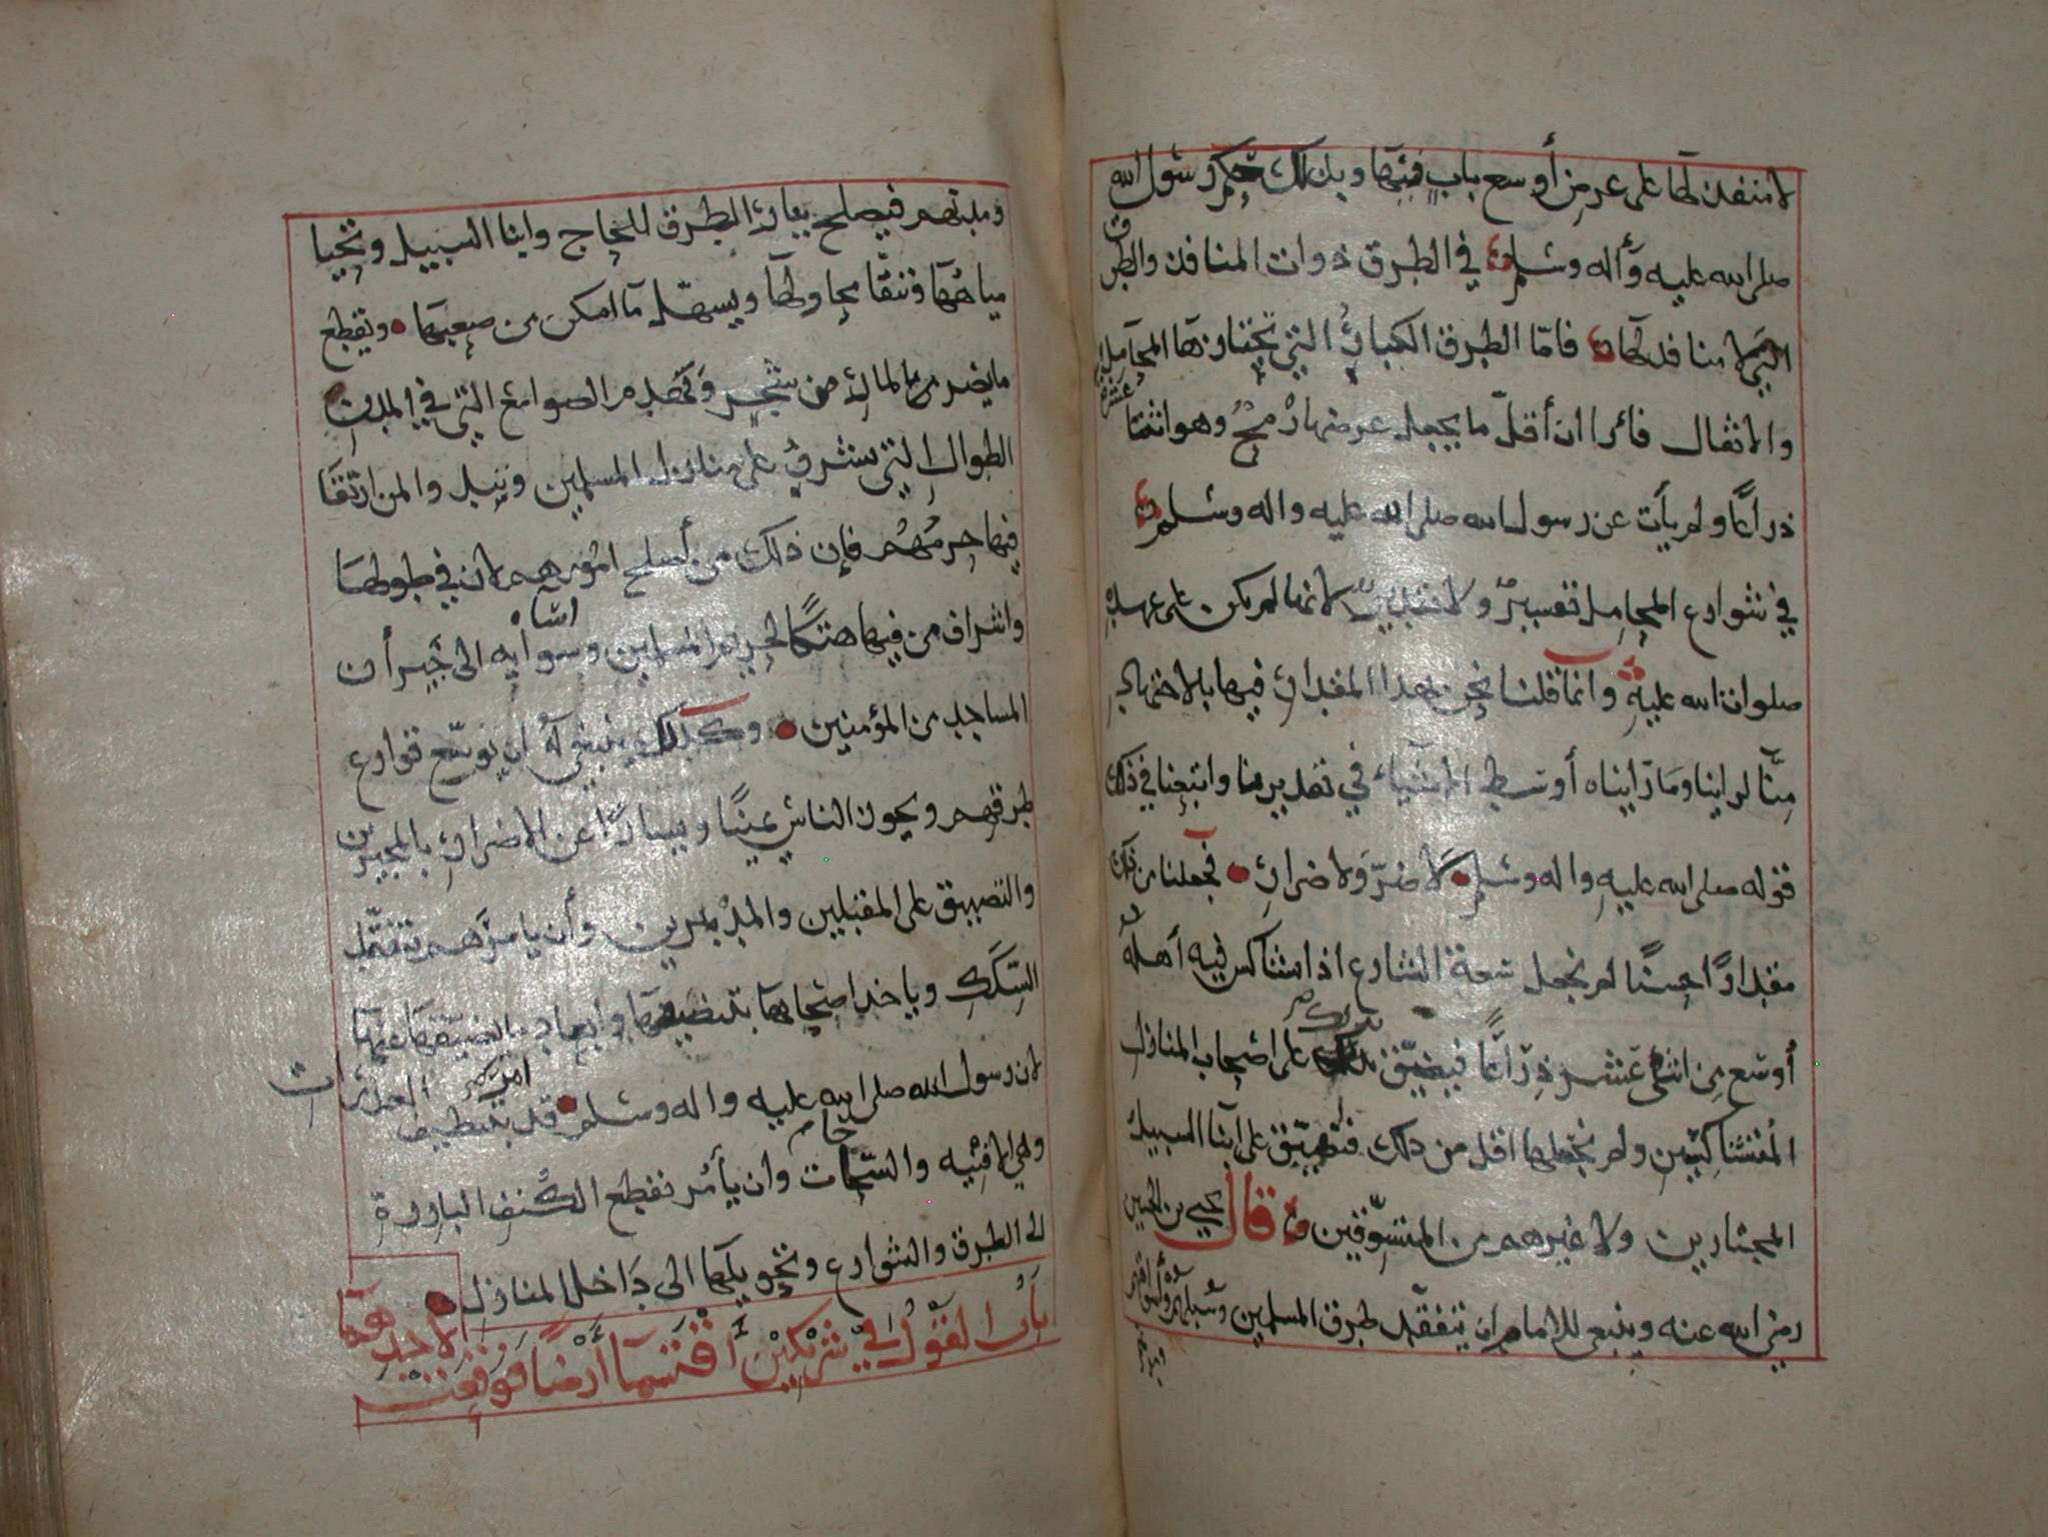 لا منفذ لها على عرض أوسع باب فيها وبذلك حكم رسول الله
صلى الله عليه وآله وسلم في الطرق ذوات المنافذ والطرق
التي لا منافذ لها فامّا الطرق الكبار التي تجتازها المحامل
والاثقال فأرا ان أقلّ ما يجعل عرضها رمح وهو اثنتا عشرة
ذراعًا ولم يأت عن رسول الله صلى الله عليه واله وسلم
في شوارع المحامل تفسير ولا تحديد لانها لم يكن على عهده
صلوات الله عليه وانما قلنا نحن بهذا المقدار فيها بالاجتهاد
منّا لراينا وما رايناه أوسط الاشياء في تقديرنا واتبعنا في ذلك
قوله صلى الله عليه واله وسلم لا ضرر ولا ضرار فجعلنا من ذلك
مقدارًا حسنًا لم نجعل سعة الشارع اذا تشاكس فيه أهله
أوسع من اثني عشر ذراعًا فيضيّق بذلك على اصحاب المنازل
المتشاكسين ولم نجعلها اقل من ذلك فنضيّق على ابنا السبيل
المجتازين ولا غيرهم من المتسوّقين قال يحيى بن الحسين
رضي الله عنه وينبغي للامام ان يتفقّد طرق المسلمين وسبلهم وأسواقهم
ومدنهم فيصلح بعاد الطرق للحاج وابنا السبيل وتحيا
مياهها وتنقّا مجاولها ويسهّل ما امكن من صعبها ويقطع
ما يضر من بالمارة من شجر وتهدم الصوامع التي في المدن
الطوال التي تشرف على منازل المسلمين وتبدو لمن ارتقا
فيها حرمهم فإن ذلك من أصلح امورهم لان في طولها
واشراف من فيها هتكًا لحريم المسلمين واساه الى جيران
المساجد من المؤمنين وكذلك ينبغي له ان يوسّع قوارع
طرقهم ويحوز الناس يمينًا ويسارًا عن الاضرار بالمجتازين
والتضييق على المقبلين والمدبرين وأن يامرهم بتفقّد
السّكك وياخذ اصحابها بتنضيفها وابعاد ما يضيّقها عنها
لان رسول الله صلى الله عليه واله وسلم قد امر بتنظيف العذرات
وهي الافنيه والسّاحات وان يأمر بقطع الكنف البارزة
الى الطرق والشوارع وتحويلها الى داخل المنازل
باب القول في شريكين اقتسما أرضًا فوقعت
لاحدهما